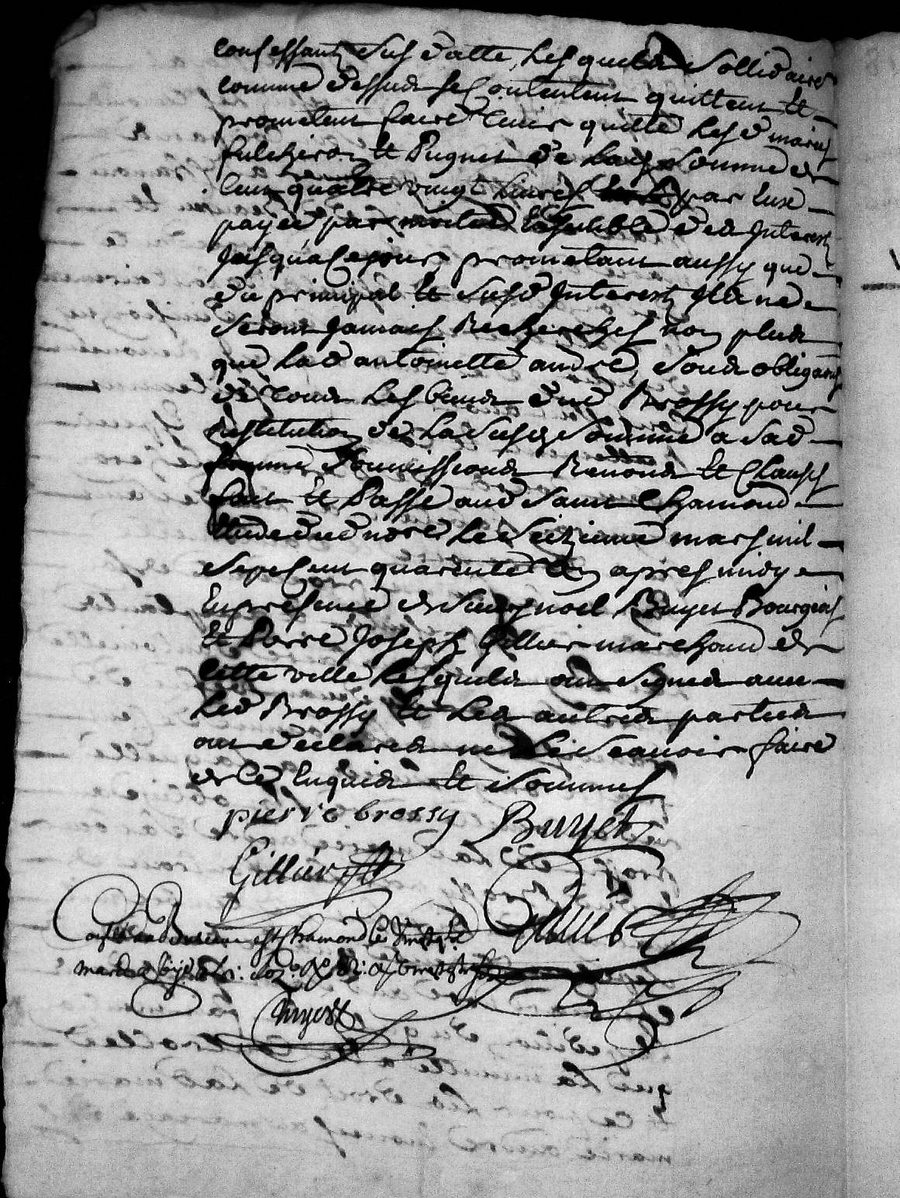 confessant susd. acte, lesquels sollidaires
comme dessus se contentent quittent et
prometent faire tenir quitte lesd. mariés
fulchiron et Puguet de lad. somme de
cent quatre vingt livres par eux
payée ensemble des Interest
Jusqua ce jour, prometant aussy que
du principal et susd. Interest Ils ne
seront Jamais Recherchés non plus
que lad. antoinette andré, sous obligaōn
de tous les biens dud. Brossy pour
Restitution de la susd. somme a sad.
femme, soumissions Renonōns et clauses
fait et Passé aud. Saint Chamond
Etude dud. nore. le seizieme mars mil
sept cent quarente apres midy
En presence de Sieurs noel Buyet Bourgeois
et Pierre Joseph Gillier marchand de
cette ville lesquels ont signés avec
led. Brossy et les autres parties
ont declarés ne le scavoir faire
de ce Enquis et sommés
pierre brossy Buyet
Gillier
Chamond le
mars
Buyet